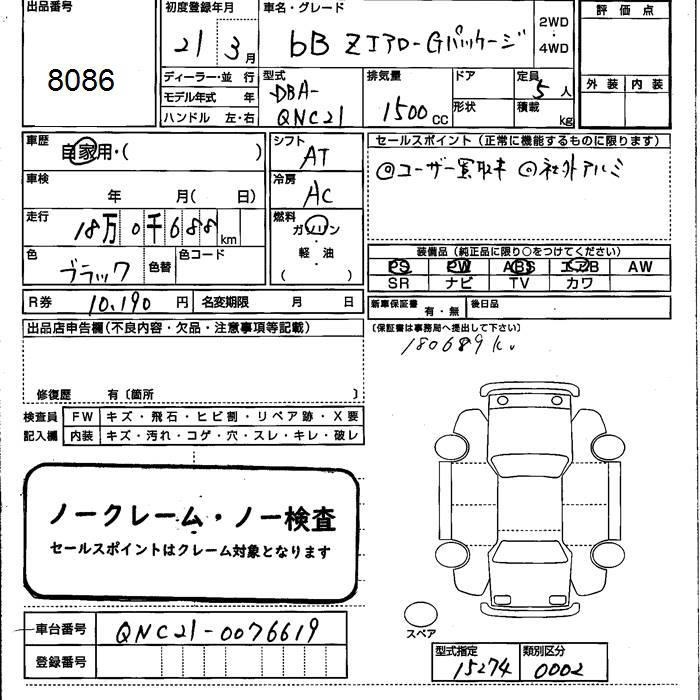 出品番号
8086
初度登録年月
21 3月
車名・グレード
bB Zエアロ-Gパッケージ
2WD
・
4WD
評価点
外装 内装
ディーラー・並行
モデル年式 年
ハンドル 左・右
型式
-DBA-
QNC21
排気量
1500cc
ドア
形状
定員
5人
積載
kg
車歴
自家用・( )
シフト
AT
セールスポイント(正常に機能するものに限ります)
◎ユーザー買取車 ◎社外アルミ
車検
年 月( 日)
冷房
AC
走行
18万0千688km
燃料
ガソリン
・
軽油
( )
色
ブラック
色替
色コード
装備品(純正品に限り○をつけてください)
PS PW ABS エアB AW
SR ナビ TV カワ
R券 10,190円
名変期限 月 日
新車保証書 有・無
後日品
(保証書は事務局へ提出して下さい)
180689k.
出品店申告欄(不良内容・欠品・注意事項等記載)
修復歴 有〔箇所 〕
検査員
記入欄
FW キズ・飛石・ヒビ割・リペア跡・X要
内装 キズ・汚れ・コゲ・穴・スレ・キレ・破レ
ノークレーム・ノー検査
セールスポイントはクレーム対象となります
車台番号 QNC21-0076619
登録番号
スペア
型式指定
15274
類別区分
0002